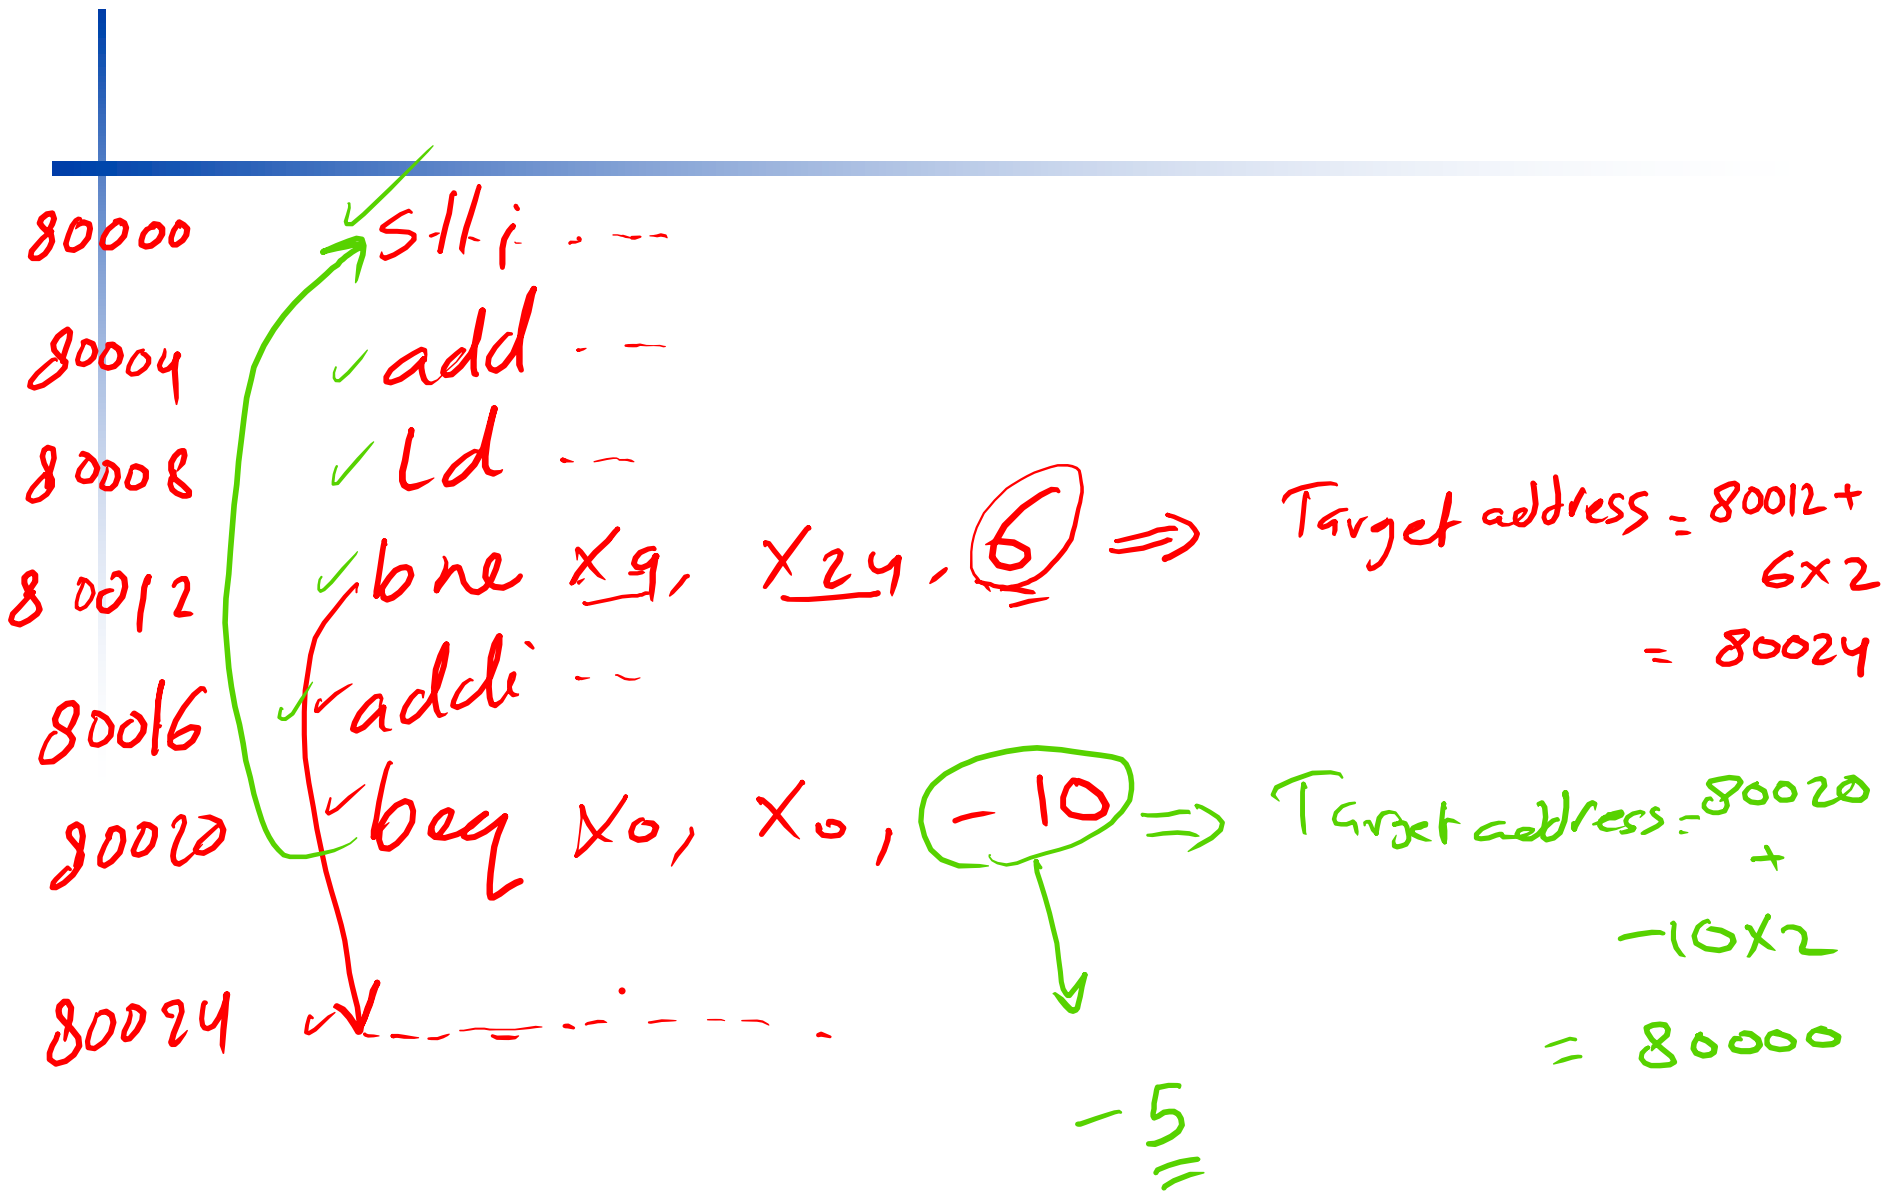 80000 slli . - - -
80004 add . - -
80008 Ld . - -
80012 bne x9, x24, 6 ⇒ Target address = 80012 +
6 x 2
= 80024
80016 addi - - -
80020 beq x0, x0, -10 ⇒ Target address = 80020
+
-10 x 2
80024
= 80000
-5